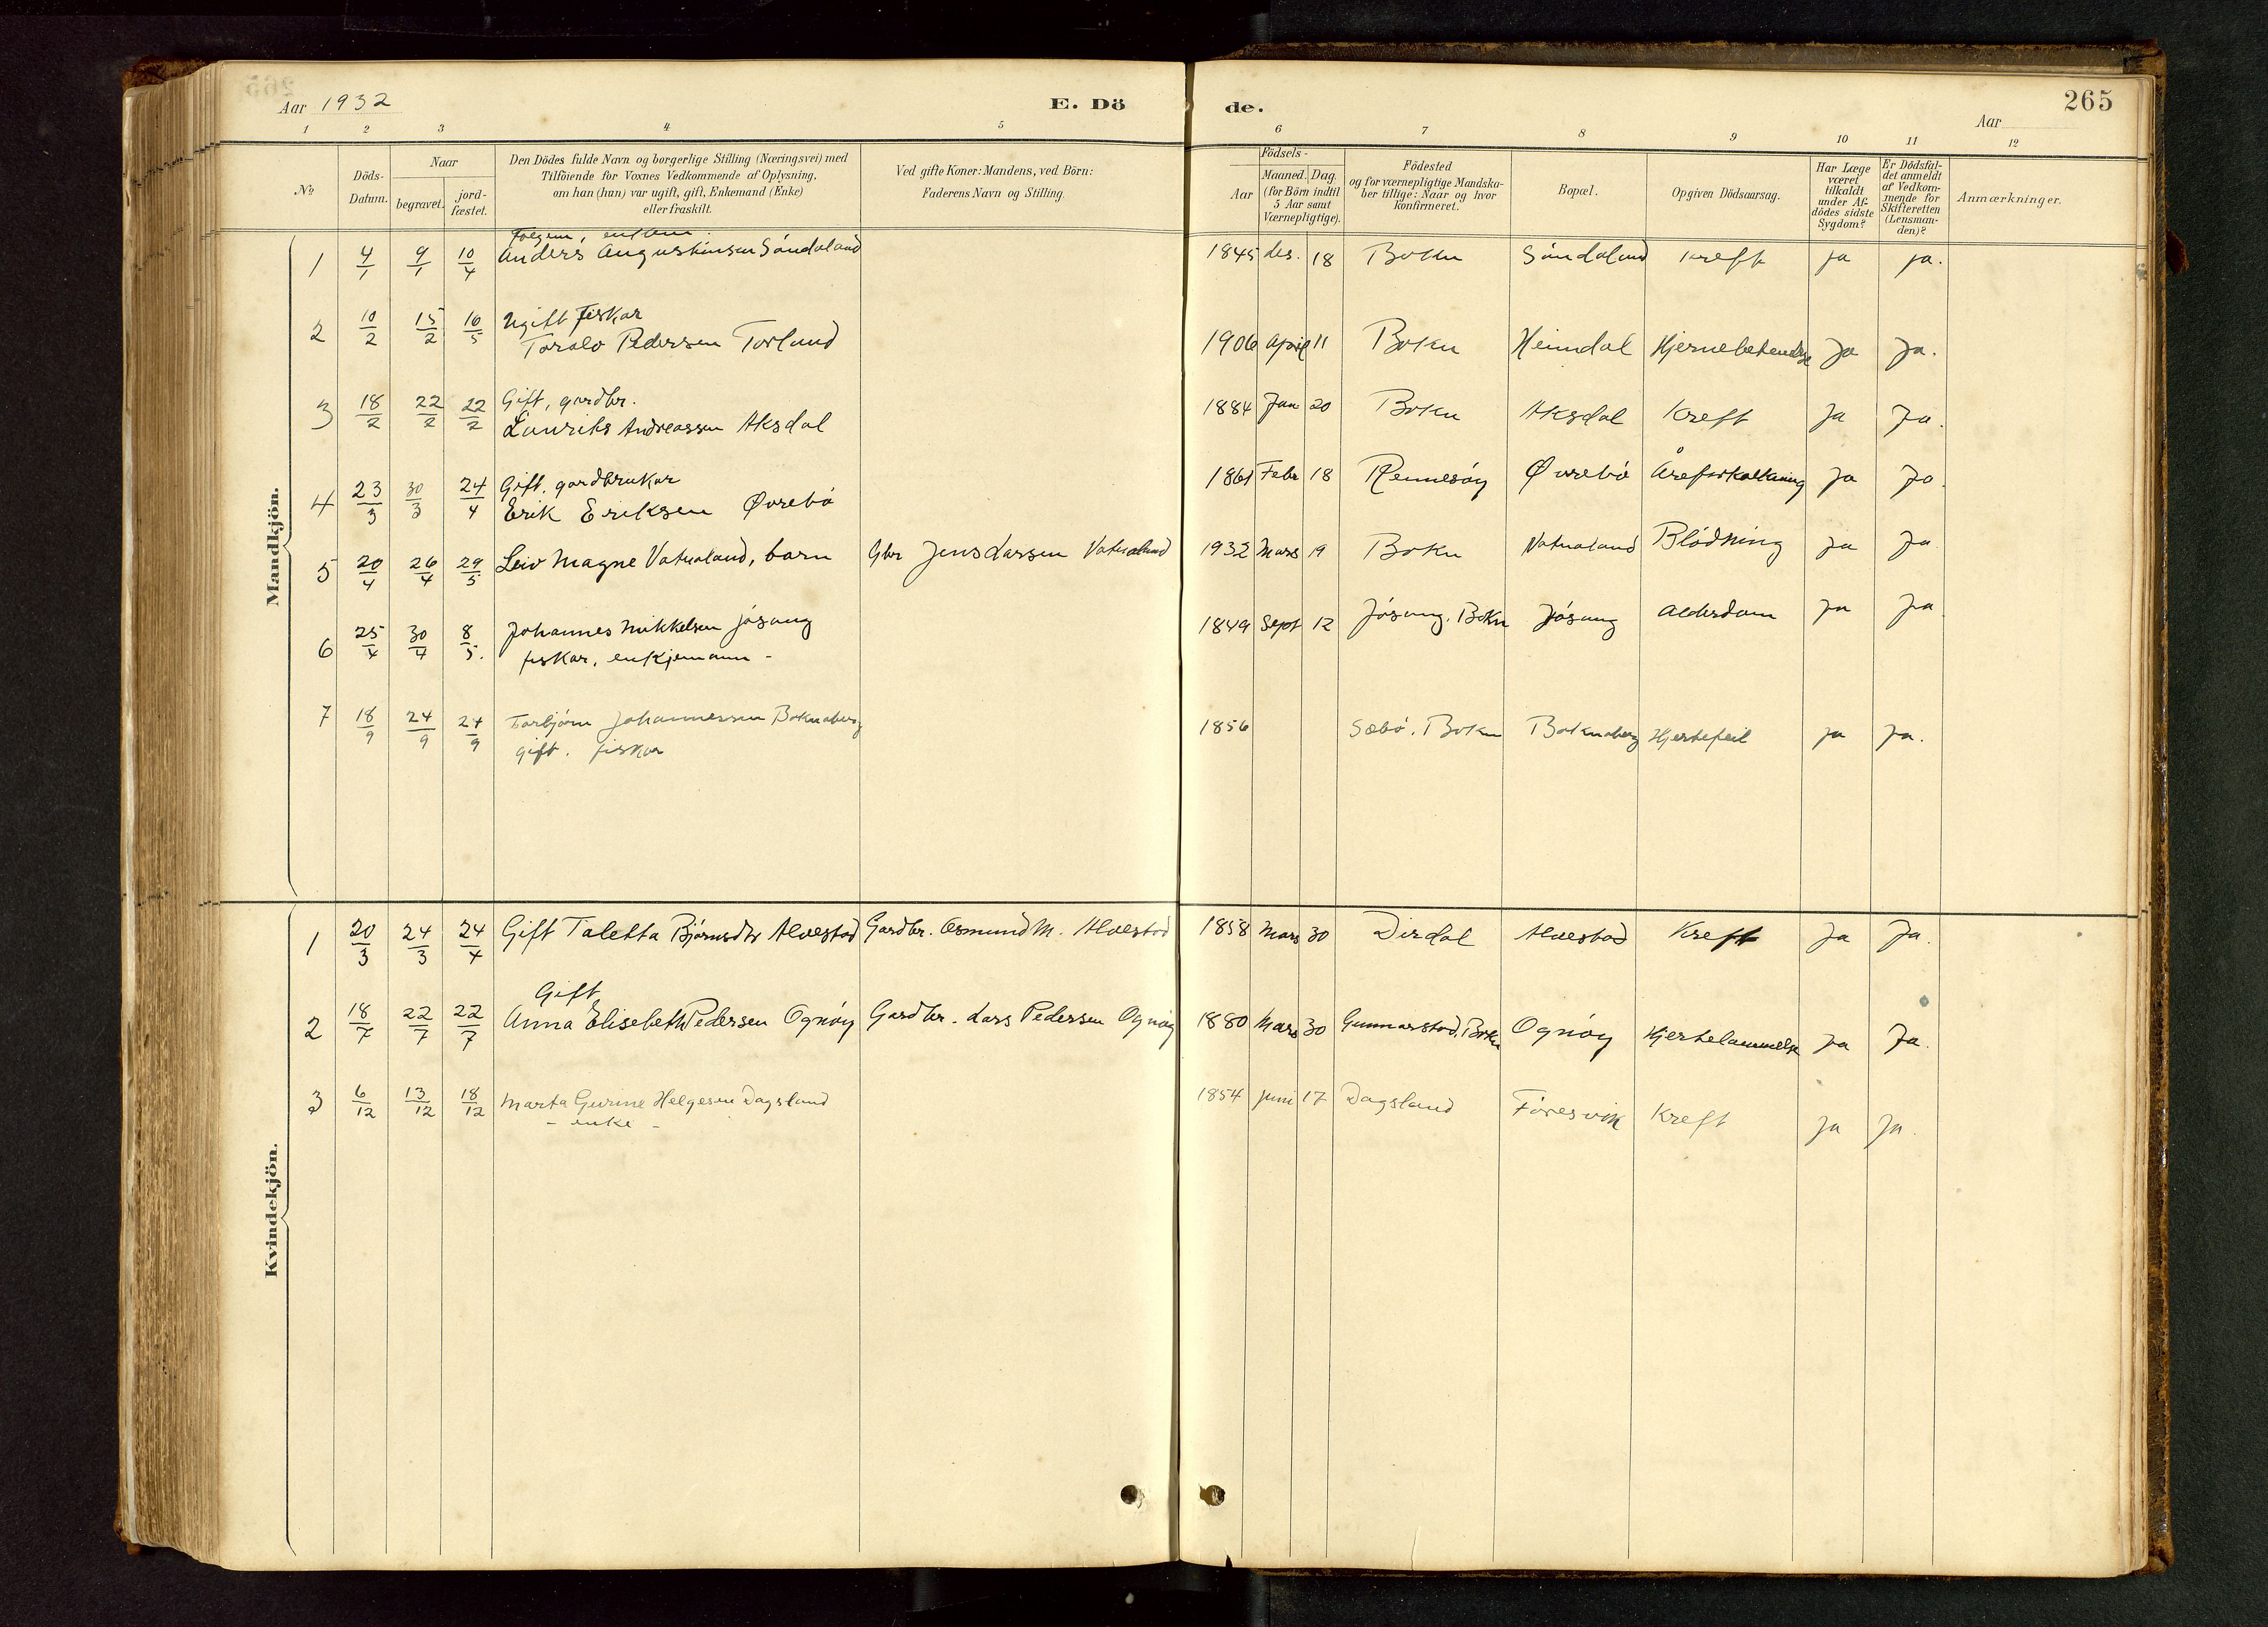 Aar 1932
E. Dö
de.
265
Aar
1 2 3 4 5 6 7 8 9 10 11 12
No
Döds-
Datum.
Naar
begravet.
jord-
fæstet.
Den Dödes fulde Navn og borgerlige Stilling (Næringsvei) med
Tilföiende for Voxnes Vedkommende af Oplysning,
om han (hun) var ugift, gift, Enkemand (Enke)
eller fraskilt.
Ved gifte Koner: Mandens, ved Börn:
Faderens Navn og Stilling.
Födsels-
Aar
Maaned. Dag.
(for Börn indtil
5 Aar samt
Værnepligtige).
Födested
og for værnepligtige Mandska-
ber tillige: Naar og hvor
konfirmeret.
Bopæl.
Opgiven Dödsaarsag.
Har Læge
været
tilkaldt
under Af-
dödes sidste
Sygdom?
Er Dödsfal-
det anmeldt
af Vedkom-
mende for
Skifteretten
(Lensman-
den)?
Anmærkninger.
Mandkjön.
1 4/1 9/1 10/4 Anders Augustinsen Söndaland 1845 des. 18 Bokn Söndaland Kreft ja ja.
Ugift fiskar
2 10/2 15/2 16/5 Toralv Pedersen Torland 1906 April 11 Bokn Heimdal Ja Ja.
Gift, gardbr.
3 18/2 22/2 22/2 Lauriks Andreassen Aksdal 1884 Jan 20 Bokn Aksdal Kreft Ja Ja.
Gift, gardbrukar
4 23/3 30/3 24/4 Erik Eriksen Øvrebö 1861 Febr 18 Rennesöy Øvrebö Åreforkalkning Ja Ja.
5 20/4 26/4 29/5 Leiv Magne Vatnaland, barn Gbr Jens Larsen Vatnaland 1932 Mars 19 Bokn Vatnaland Blödning Ja Ja
6 25/4 30/4 8/5. Johannes Mikkelsen Jösang 1849 Sept 12 Jösang, Bokn Jösang Alderdom Ja Ja
fiskar, enkjemann -
7 18/9 24/9 24/9 Torbjörn Johannessen Boknaberg 1856 Sæbö, Bokn Boknaberg Hjertefeil Ja Ja.
gift. fiskar
Kvindekjön.
1 20/3 24/3 24/4 Gift Taletta Björnsdtr Alvestad Gardbr. Osmund M. Alvestad 1858 Mars 30 Dirdal Alvestad Kreft Ja Ja.
Gift
2 18/7 22/7 22/7 Anna Elisebeth Pedersen Ognöy Gardbr. Lars Pedersen Ognöy 1880 Mars 30 Gunnarstad, Bokn Ognöy Hjertelammelse Ja Ja.
3 6/12 13/12 18/12 Marta Gurine Helgesen Dagsland 1854 juni 17 Dagsland Föresvik Kreft Ja Ja.
- enke -